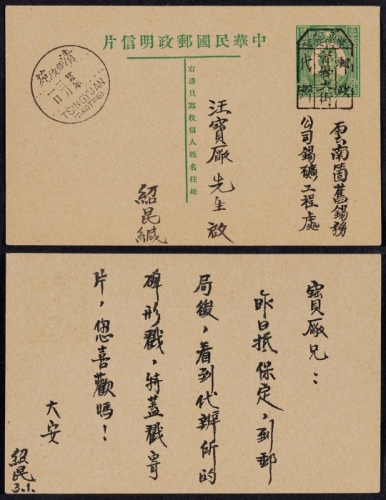 中華民國郵政明信片
右邊只寫收信人姓名住址
雲南箇舊錫務
公司錫礦工程處
汪寶廠先生啟
紹昆緘
清苑
TSINGYUAN
(PAOTING)
郵政
代辦
寶廠兄：
昨日抵保定，到郵
局後，看到代辦所的
碑形戳，特蓋戳寄
片，您喜歡嗎！
大安
紹昆
3.1.